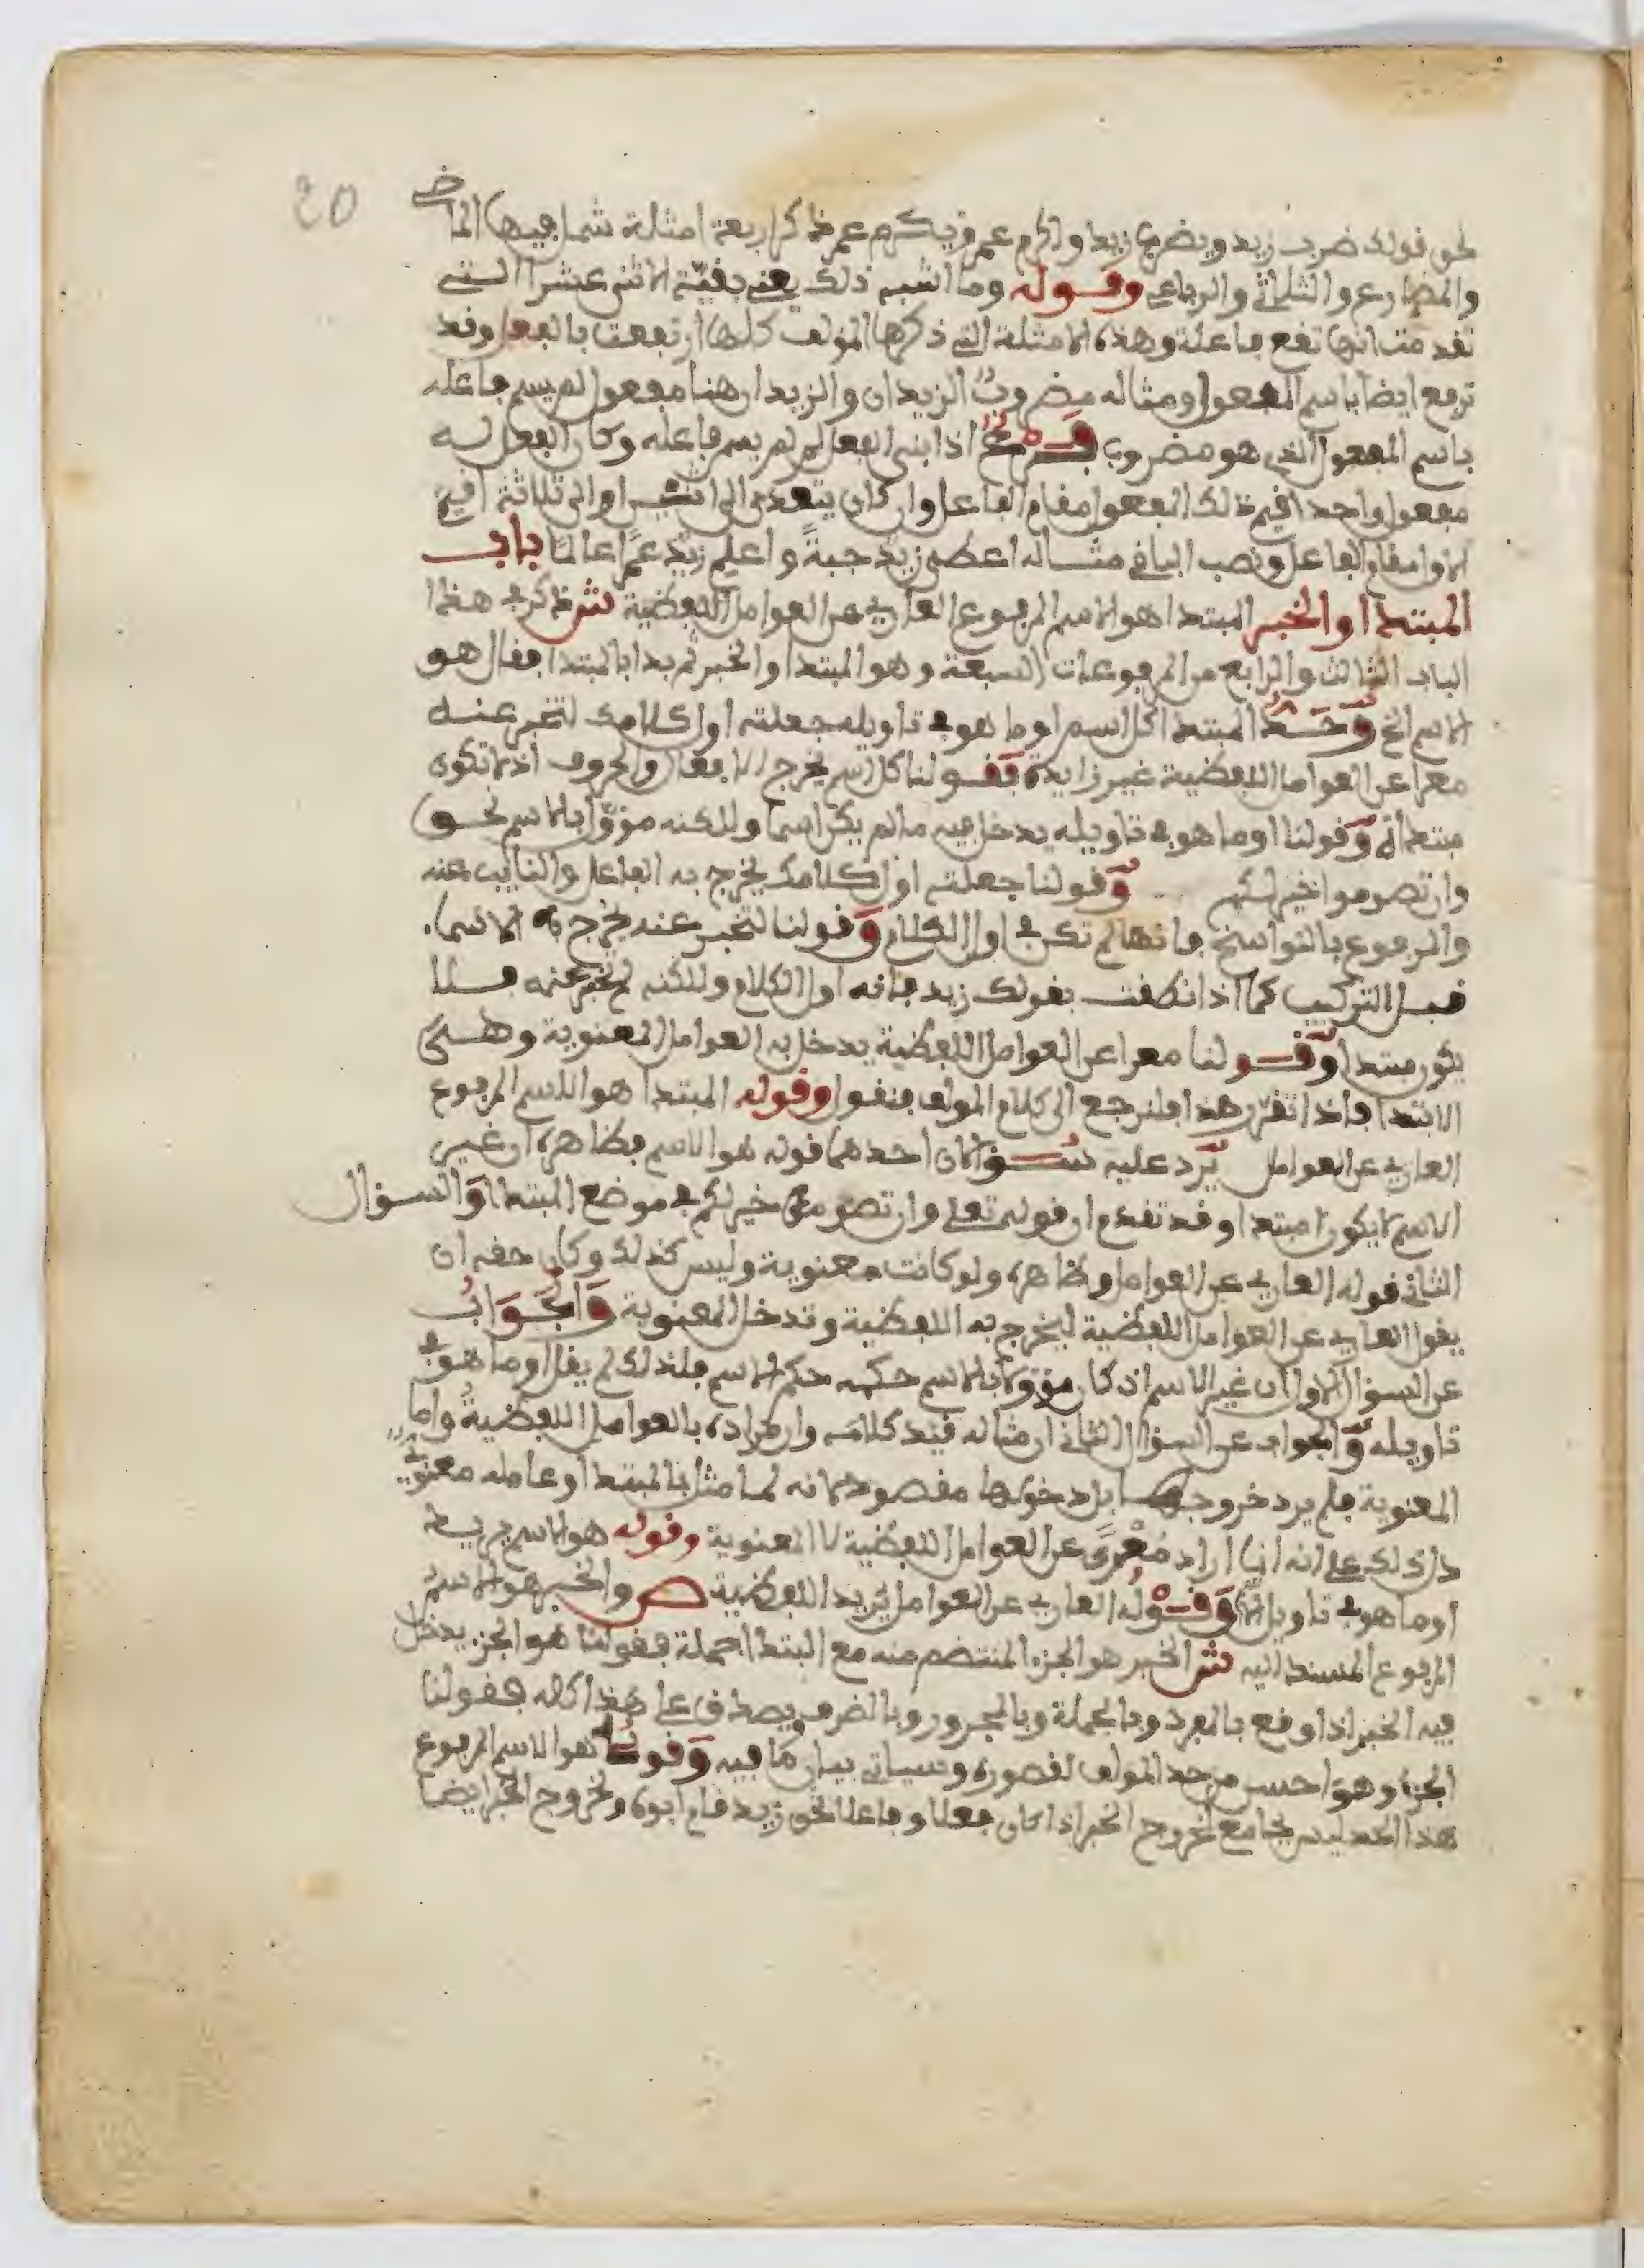 20
نحو قولك ضرب زيد ويضرب زيد واكرم عمرو ويكرم عمرو ذكر اربعة امثلة شمل فيها الماضي
والمضارع والثلاثي والرباعي وقوله وما اشبه ذلك يعني بقية الاثني عشر التي
تقدمت انها تقع فاعلة وهذه الامثلة التي ذكرها المولف كلها ارتفعت بالفعل وقد
ترفع ايضا باسم المفعول ومثاله مضروب الزيدان والزيدان هنا مفعول لم يسم فاعله
باسم المفعول الذي هو مضروب اذا بني الفعل لم يسم فاعله وكان الفعل له
مفعول واحد اقيم ذلك المفعول مقام الفاعل وان كان يتعدى الى اثنين او الى ثلاثة اقيم
الاول مقام الفاعل ونصب الباقي مثاله اعطي زيد جبة واعلم زيد عمرا عالما باب
المبتدا والخبر المبتدا هو الاسم المرفوع العاري عن العوامل اللفظية ش ذكر في هذا
الباب الثالث والرابع من المرفوعات السبعة وهو المبتدا والخبر ثم بدا بالمبتدا فقال هو
الاسم الخ وحد المبتدا كل اسم او ما هو في تاويله جعلته اول كلامك لتخبر عنه
معرا عن العوامل اللفظية غير زايدة فقولنا كل اسم يخرج الافعال والحروف اذ لا تكون
مبتداة وقولنا او ما هو في تاويله يدخل فيه ما لم يكن اسما ولكنه مؤول بالاسم نحو
وان تصوموا خير لكم وقولنا جعلته اول كلامك يخرج به الفاعل والنايب عنه
والمرفوع بالنواسخ فانها لم تكن في اول الكلام وقولنا لتخبر عنه يخرج به الاسما
قبل التركيب كما اذا نطقت بقولك زيد فانه اول الكلام ولكنه لم تخبر عنه فلا
يكون مبتدا وقولنا معرا عن العوامل اللفظية يدخل به العوامل المعنوية وهي
الابتدا فاذا تقرر هذا فلنرجع الى كلام المولف فنقول وقوله المبتدا هو الاسم المرفوع
العاري عن العوامل يرد عليه سؤالان احدهما قوله هو الاسم فظاهره ان غير
الاسم لا يكون مبتدا وقد تقدم ان قوله تعلى وان تصوموا خير لكم في موضع المبتدا والسؤال
الثاني قوله العاري عن العوامل وظاهره ولو كانت معنوية وليس كذلك وكان حقه ان
يقول العاري عن العوامل اللفظية ليخرج به اللفظية وتدخل المعنوية والجواب
عن السؤال الاول ان غير الاسم اذ كان مؤولا بالاسم حكمه حكم الاسم فلذلك لم يقل او ما هو في
تاويله والجواب عن السؤال الثاني ان مثاله قيد كلامه وان مراده بالعوامل اللفظية واما
المعنوية فلم يرد خروجها بل دخولها مقصود لانه لما مثل بالمبتدا وعامله معنوي
دل ذلك على انه انما اراد معرى عن العوامل اللفظية لا المعنوية وقوله هو الاسم يريد
او ما هو في تاويل الاسم وقوله العاري عن العوامل يريد اللفظية ص والخبر هو الاسم
المرفوع المسند اليه ش الخبر هو الجزء المنتضم منه مع المبتدا جملة فقولنا هو الجزء يدخل
فيه الخبر اذا وقع بالمفرد وبالجملة وبالمجرور وبالضرف ويصدق على هذا كله فقولنا
الجزء وهو احسن من حد المولف لقصوره وسياتي بيان ما فيه وقوله هو الاسم المرفوع
هذا الحد ليس بجامع لخروج الخبر اذا كان فعلا وفاعلا نحو زيد قام ابوه ولخروج الخبر ايضا